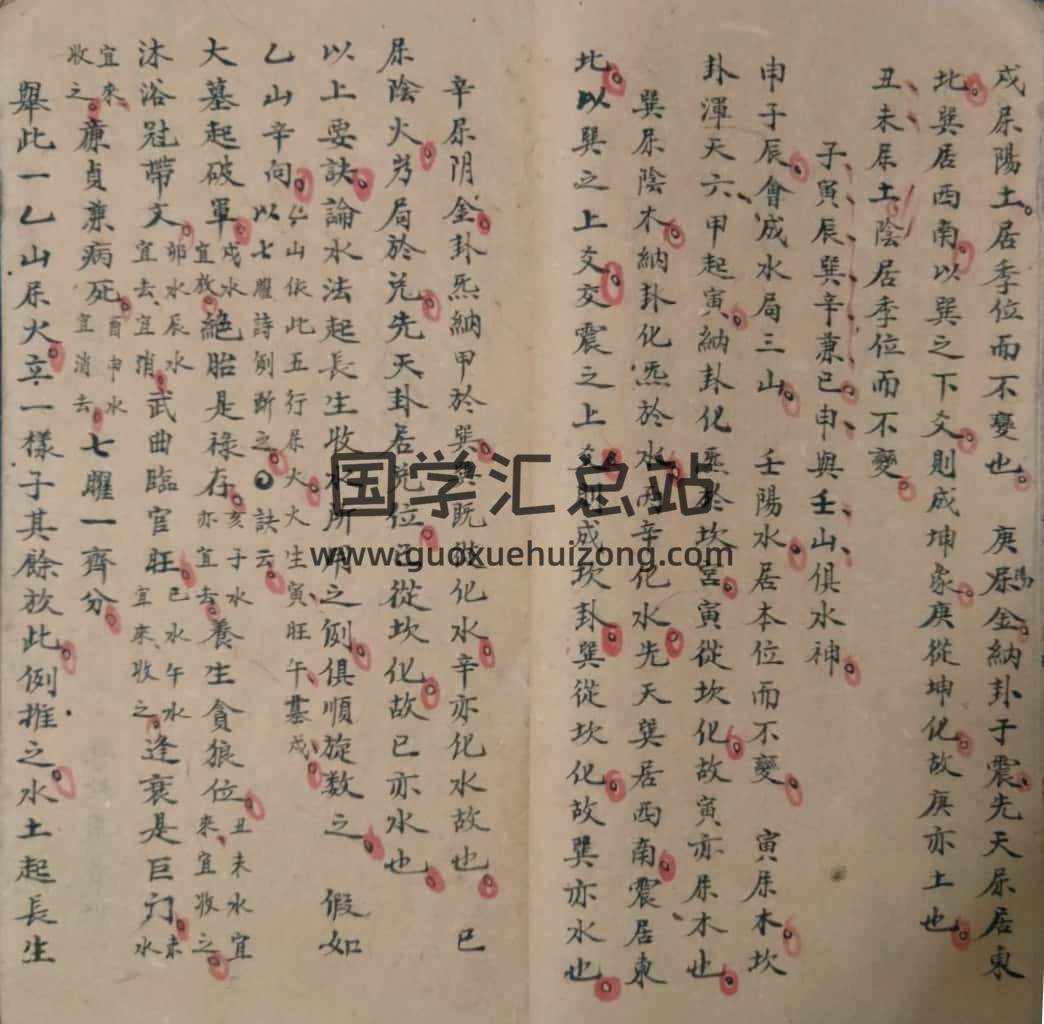 戍屬陽土居季位而不變也　庚屬金納卦于震先天屬居東
北巽居西南以巽之下爻則成坤象庚從坤化故庚亦土也
丑未屬土陰居季位而不變
子寅辰巽辛兼已申與壬山俱水神
申子辰會成水局三山　壬陽水居本位而不變　寅屬木坎
卦渾天六甲起寅納卦化炁於坎宮寅從坎化故寅亦屬木也
巽屬陰木納卦化炁於水丙辛化水先天巽居西南震居東
北以巽之上爻交震之上爻則成坎卦巽從坎化故巽亦水也
辛屬阴金卦炁納甲於巽巽既從化水辛亦化水故也　已
屬陰火為局於兌先天卦居兌位已從坎化故已亦水也
以上要訣論水法起長生收水所用之例俱順旋数之　假如
乙山辛向仁山依此五行屬火火生寅旺午墓戍以七曜詩例断之訣云
大墓起破軍戍水宜放絕胎是祿存亥子水亦宜去養生貪狼位丑未水宜來宜收之
沐浴冠帶文卯水辰水宜去宜消武曲臨官旺已水午水宜來收之逢衰是巨门未水
宜來收之廉貞兼病死酉申水宜消去七曜一齊分
舉此一乙山屬火立一樣子其餘放此例推之水土起長生
国学汇总站
www.guoxuehuizong.com